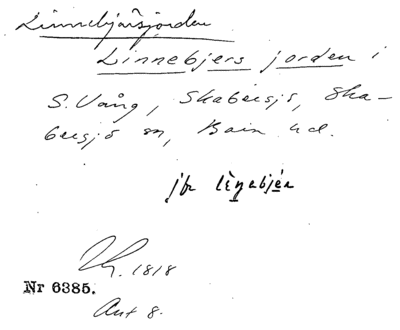 Linnebjärsjorden
Linnebjers jorden i
S. Vång, Skabersjö, Ska-
bersjö sn, Bara hd.
jfr
1818
Nr 6385.
Akt 8.